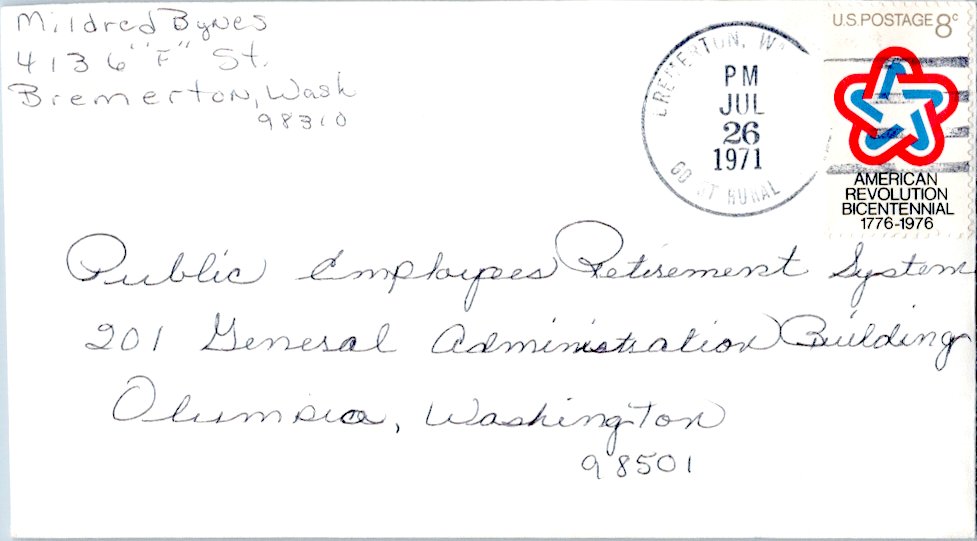 Mildred Bynes
4136 "F" St.
Bremerton, Wash
98310
U.S. POSTAGE 8c
BREMERTON, WA
PM
JUL
26
1971
RURAL
AMERICAN
REVOLUTION
BICENTENNIAL
1776-1976
Public Employees Retirement System
201 General Administration Building
Olumpia, Washington
98501